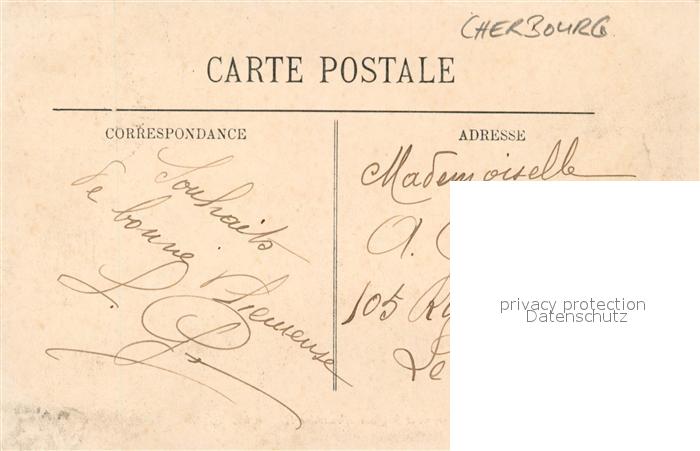 CHERBOURG
CARTE POSTALE
CORRESPONDANCE
Souhaits
de bonne
L.
ADRESSE
Mademoiselle
A.
105
Le
privacy protection
Datenschutz